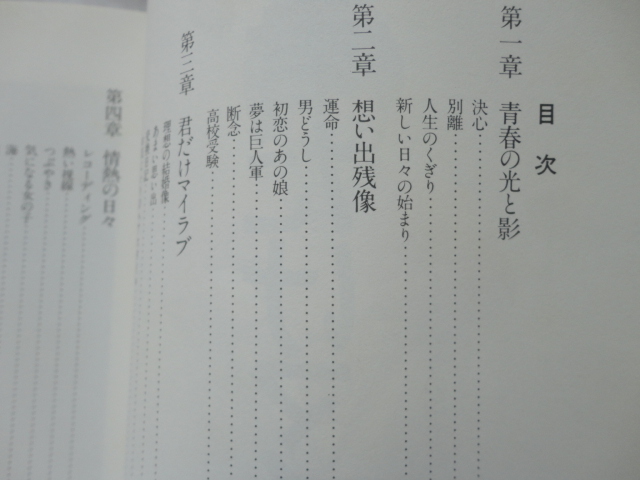 目次
第一章 青春の光と影
決心
別離
人生のくぎり
新しい日々の始まり
第二章 想い出残像
運命
男どうし
初恋のあの娘
夢は巨人軍
断念
高校受験
第三章 君だけマイラブ
理想の結婚像
第四章 情熱の日々
レコーディング
熱い視線
つぶやき
気になる女の子
海